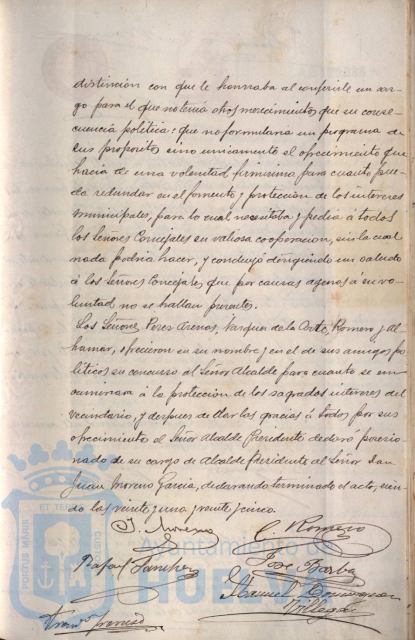 distincion con que le honraba al conferirle un car-
go para el que no tenia otros merecimientos que su conse-
cuencia politica: que no formularia un programa de
sus propositos sino unicamente el ofrecimiento que
hacia de una voluntad firmisima para cuanto pue-
da redundar en el fomento y proteccion de los intereses
municipales, para lo cual necesitaba y pedia á todos
los Señores Concejales su valiosa cooperacion, sin la cual
nada podria hacer, y concluyó dirigiendo un saludo
á los Señores Concejales que por causas agenas á su vo-
luntad no se hallan presentes.
Los Señores Perez Arenas, Vazquez de la Corte, Romero y Al-
hamar, ofrecieron en su nombre y en el de sus amigos po-
liticos su concurso al Señor Alcalde para cuanto se en-
caminara á la proteccion de los sagrados intereses del
vecindario, y despues de dar las gracias á todos por sus
ofrecimientos el Señor Alcalde Presidente declaró posesio-
nado de su cargo de Alcalde Presidente al Señor Don
Juan Moreno Garcia, declarando terminado el acto, sien-
do las veinte y una y veinte y cinco.
J. Moreno
Romero
Rafael Sanchez
Jose Barba
Manuel Dominguez
Villegas
Ayuntamiento de
HUELVA
PORTUS MARIS ET TERRAE